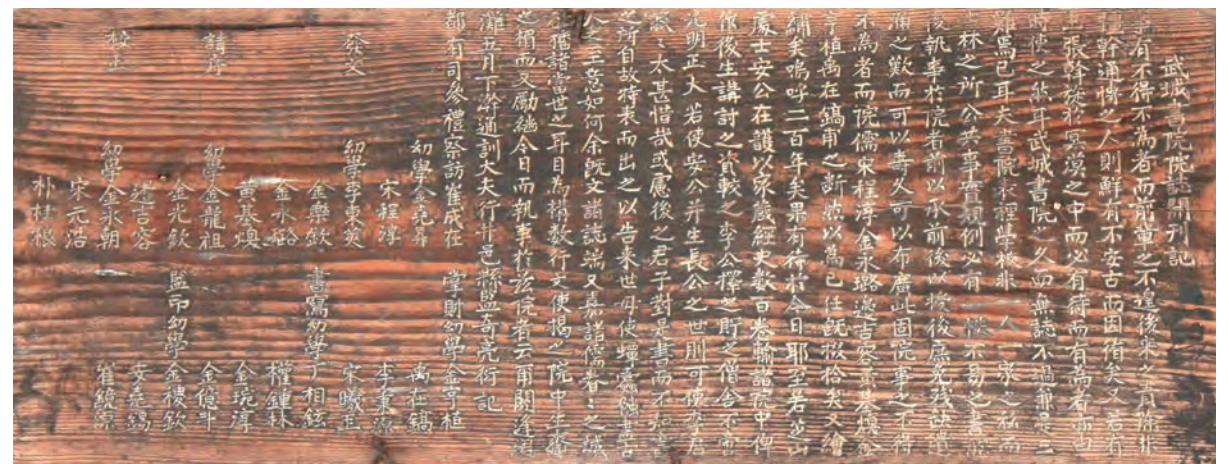 武城書院院誌開刊記
事有不得不為者而前輩之不遑後來之責除非
種幹通情之人則鮮有不安古而因循矣又若有
主張幹旋於冥漠之中而必有待而有為者亦由
時使之然耳武城書院之久而無誌不過罪是二
難焉已耳夫書院 程學校非一人一家之私而
士林之所公共事實類例必有 不易之書
後執事於院者前以承前後以擔後庶免殘缺遺
漏之歎而可以壽久可以布廣此固院事之不得
不為者而院儒宋程淳金永 邊吉容黃基煥金
亨植禹在鎬甫之斷然以為已任既掇拾矣又繪
繡矣嗚呼二百年矣 有待於今日耶至若芝山
處士安公在護以家藏經史數百卷輸諸院中俾
作後生講討之資較之李公擇之貯之僧舍不啻
光明正大若使安公并生長公之世則可使李君
太甚惜哉或慮後之君子對是書而不知書
之所自故特表而出之以告來世毋使蟬蠹蝕 古
人之至意如何余既文諸誌端又嘉諸儒者之誠
播諸當世之耳目為構數行文使揭之院中生務
之楣而又勵繼今日而執事於茲院者云爾閼逢涒
灘五月下澣通訓大夫行井邑縣監奇亮衍記
都有司參禮察訪崔成在
掌財幼學金亨植
幼學金堯
禹在鎬
宋程淳
李東源
發文
幼學李東英
宋曦
金樂欽
書寫幼學丁相鉉
金永
權鍾林
黃基煥
金琬淳
請序
幼學金龍祖
金億斗
金光欽
監印幼學
金穆欽
邊吉容
安 鎬
校正
幼學金永朝
崔
宋元浩
朴桂根